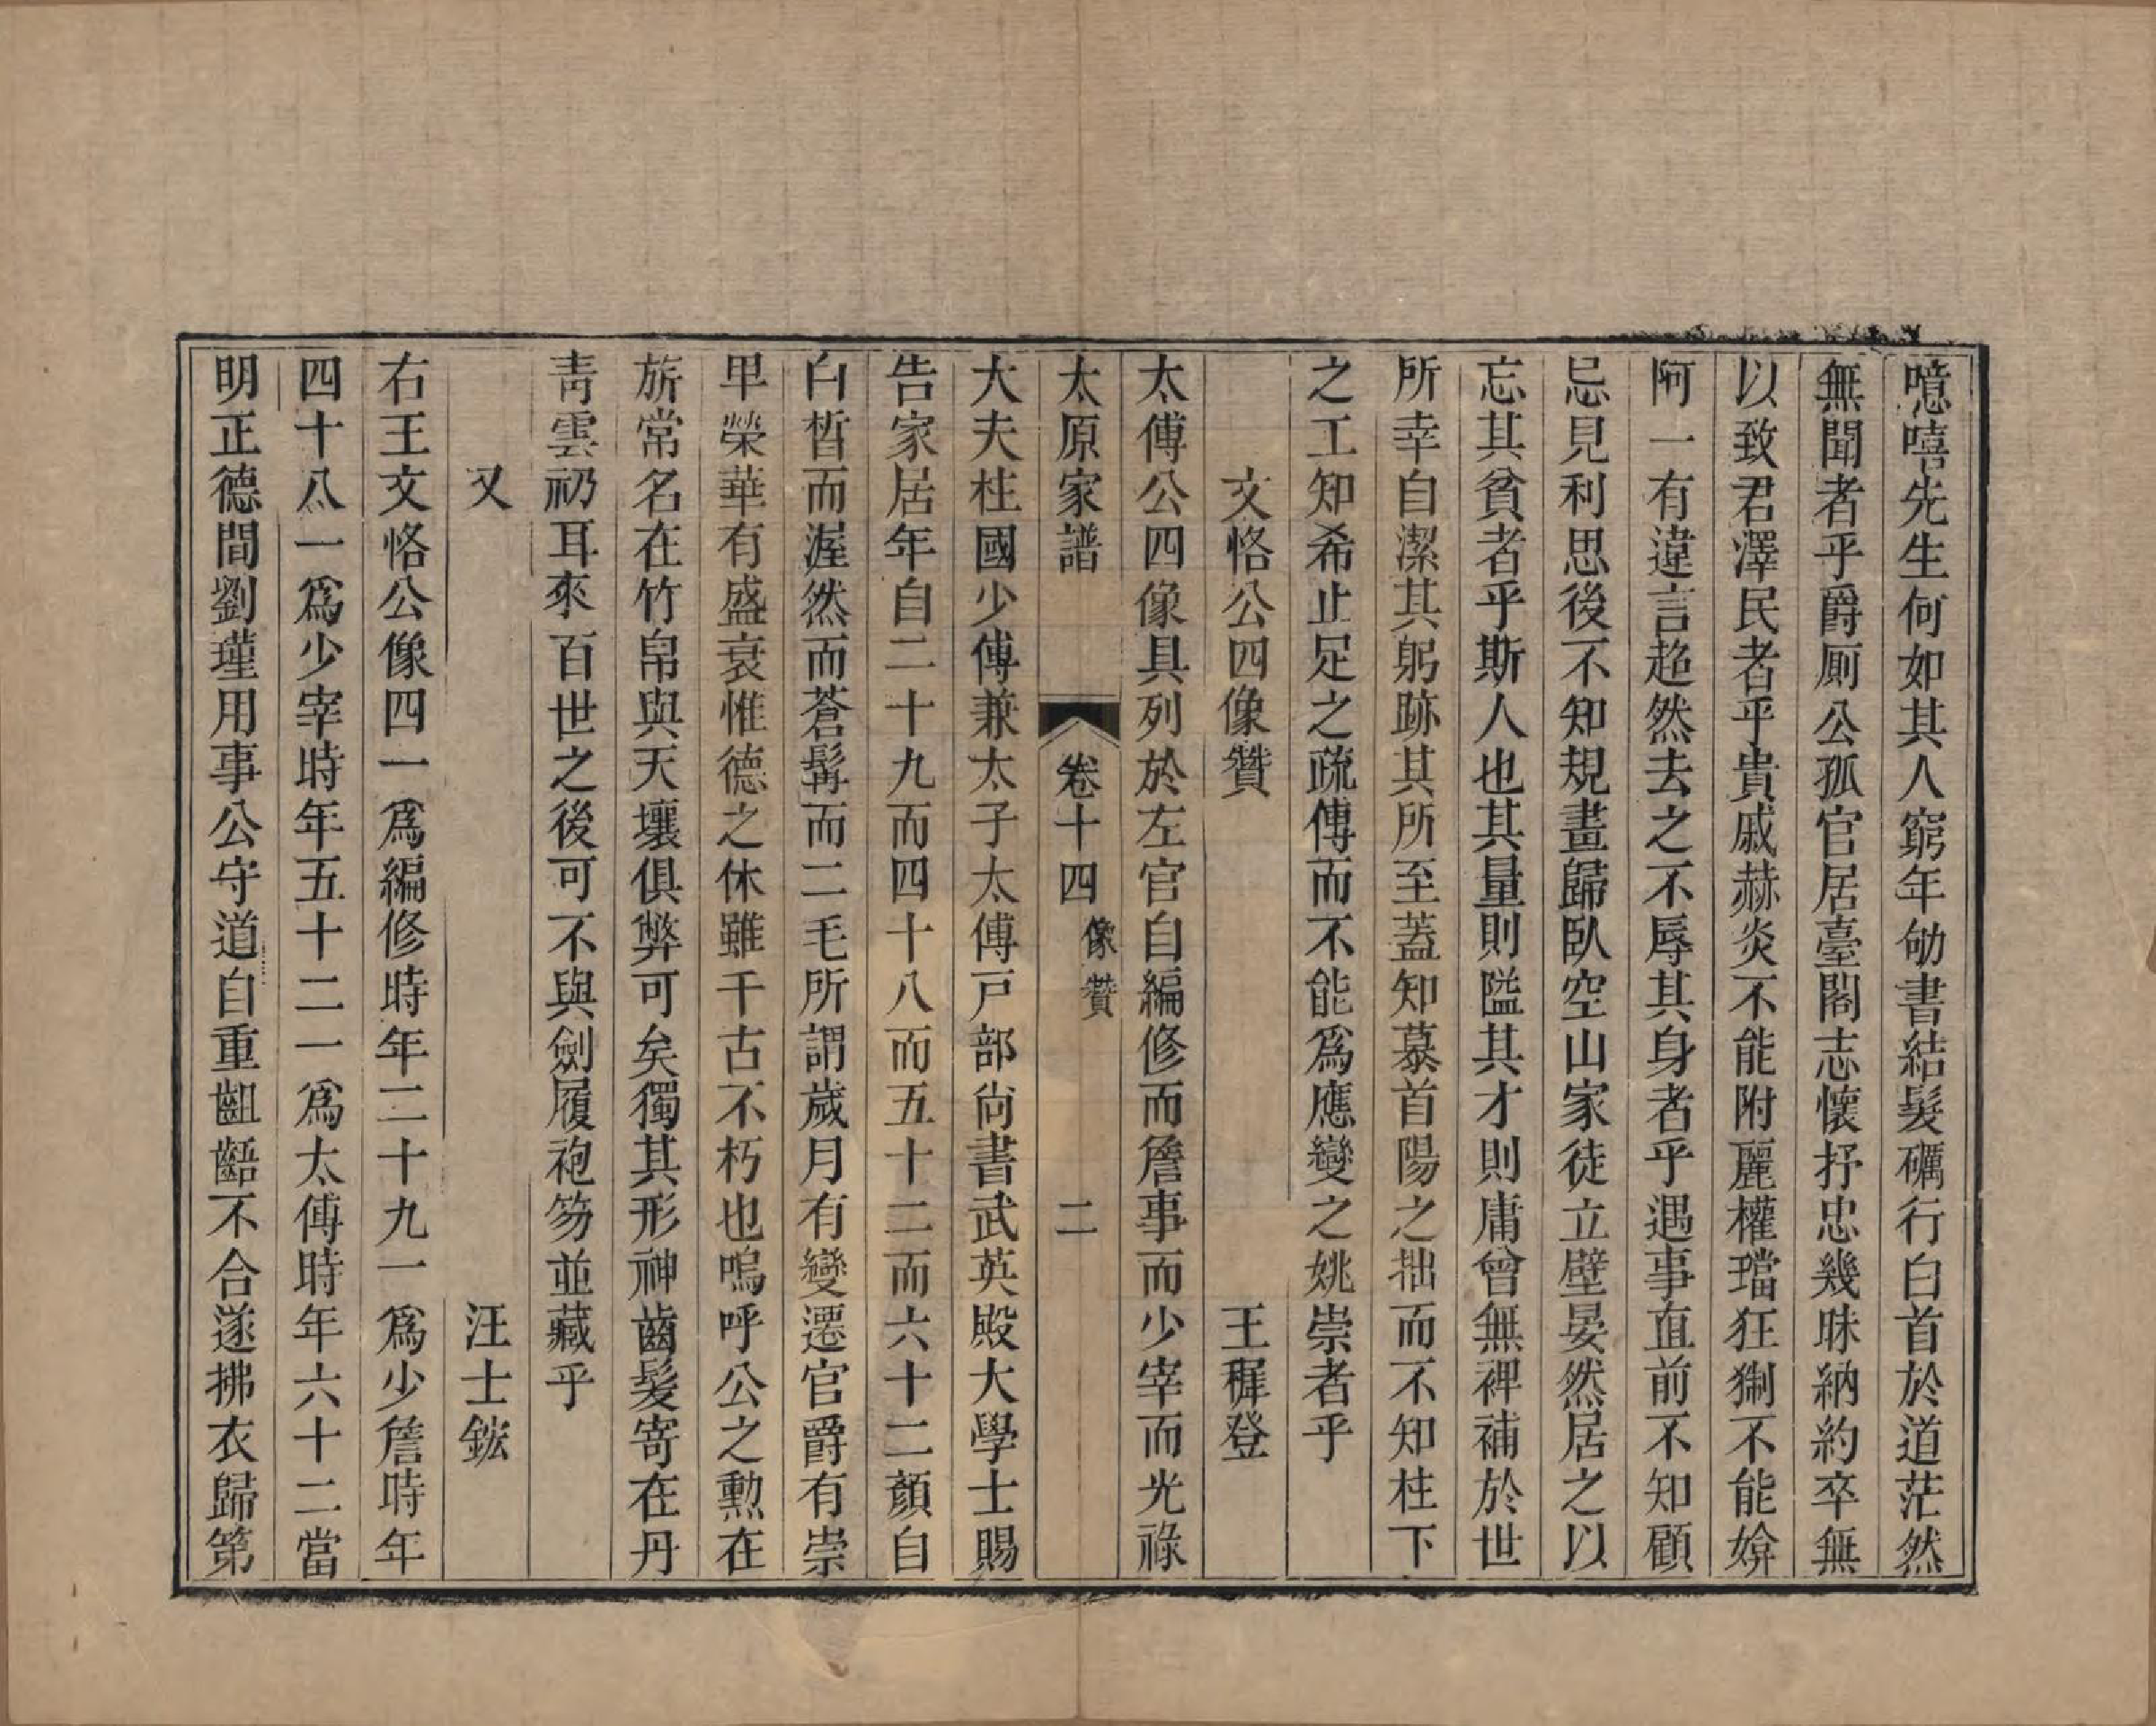 噫嘻先生何如其人窮年劬書結髮礪行白首於道茫然
無聞者乎爵厠公孤官居臺閣志懷抒忠幾昧納約卒無
以致君澤民者乎貴戚赫炎不能附麗權璫狂猘不能媕
阿一有違言趋然去之不辱其身者乎遇事直前不知顧
忌見利思後不知規畫歸臥空山家徒立壁晏然居之以
忘其貧者乎斯人也其量則隘其才則庸曾無裨補於世
所幸自潔其躬跡其所至蓋知慕首陽之拙而不知柱下
之工知希止足之疏傅而不能爲應變之姚崇者乎
文恪公四像贊 王穉登
太傅公四像具列於左官自編修而詹事而少宰而光祿
太原家譜 卷十四 像贊 二
大夫柱國少傅兼太子太傅戸部尙書武英殿大學士賜
告家居年自二十九而四十八而五十二而六十二顏自
白皙而渥然而蒼髯而二毛所謂歲月有變遷官爵有崇
卑榮華有盛衰惟德之休雖千古不朽也嗚呼公之勳在
旂常名在竹帛與天壤俱弊可矣獨其形神齒髮寄在丹
青雲礽耳來百世之後可不與劍履袍笏並藏乎
又 汪士鋐
右王文恪公像四一爲編修時年二十九一爲少詹時年
四十八一爲少宰時年五十二一爲太傅時年六十二當
明正德間劉瑾用事公守道自重齟齬不合遂拂衣歸第